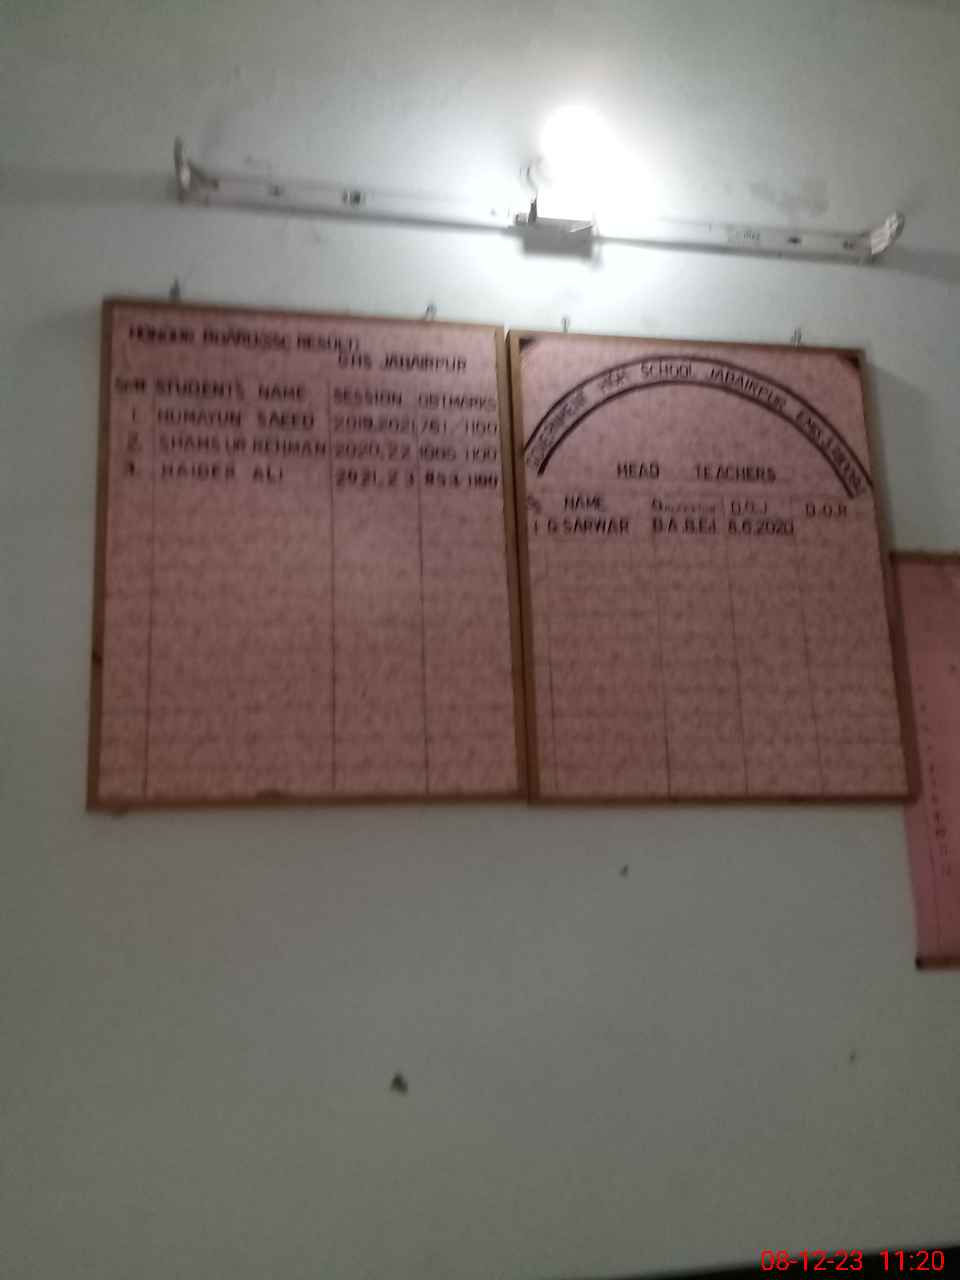 HONOUR BOARD(SSC RESULT)
GHS JABAIRPUR
Sr# STUDENTS NAME SESSION OBTMARKS
1. HUMAYUN SAEED 2019,2021 761/1100
2. SHAMS UR REHMAN 2020,22 1005/1100
3. HAIDER ALI 2021,23 953/1100
GOVERNMENT HIGH SCHOOL JABAIRPUR
HEAD TEACHERS
NAME D.O.J D.O.R
1 G SARWAR B.A.B.Ed. 8.6.2020
08-12-23 11:20